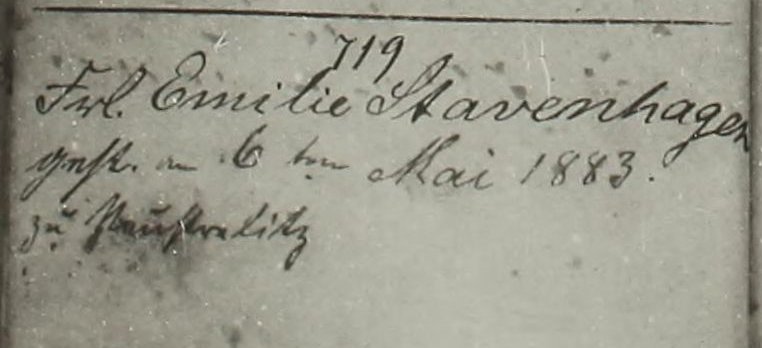 719
Frl. Emilie Stavenhagen
gest. am 6 ten Mai 1883.
zu Neustrelitz